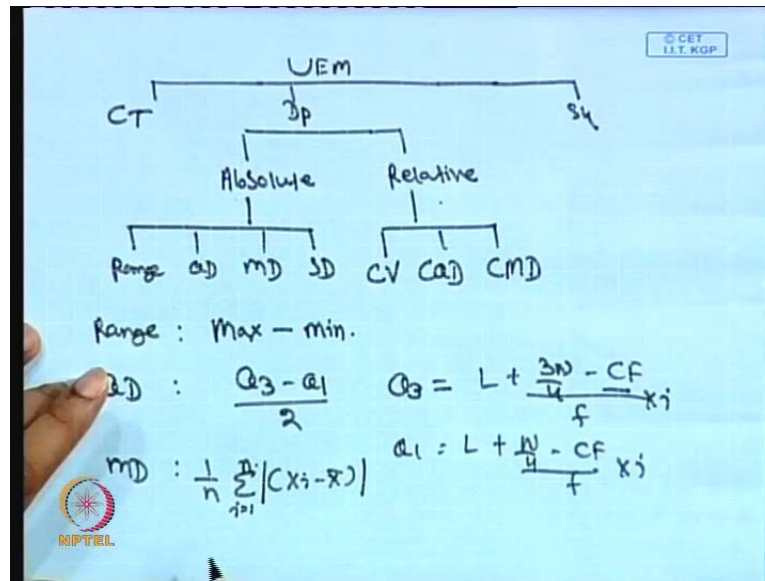 © CET
I.I.T. KGP
UEM
CT Dp Sk
Absolute Relative
Range QD MD SD CV CQD CMD
Range : Max – min.
QD : Q3 - Q1 / 2 Q3 = L + 3N/4 - CF / f × i
MD : 1/n n∑i=1 |(Xi - X̄)| Q1 = L + N/4 - CF / f × i
NPTEL